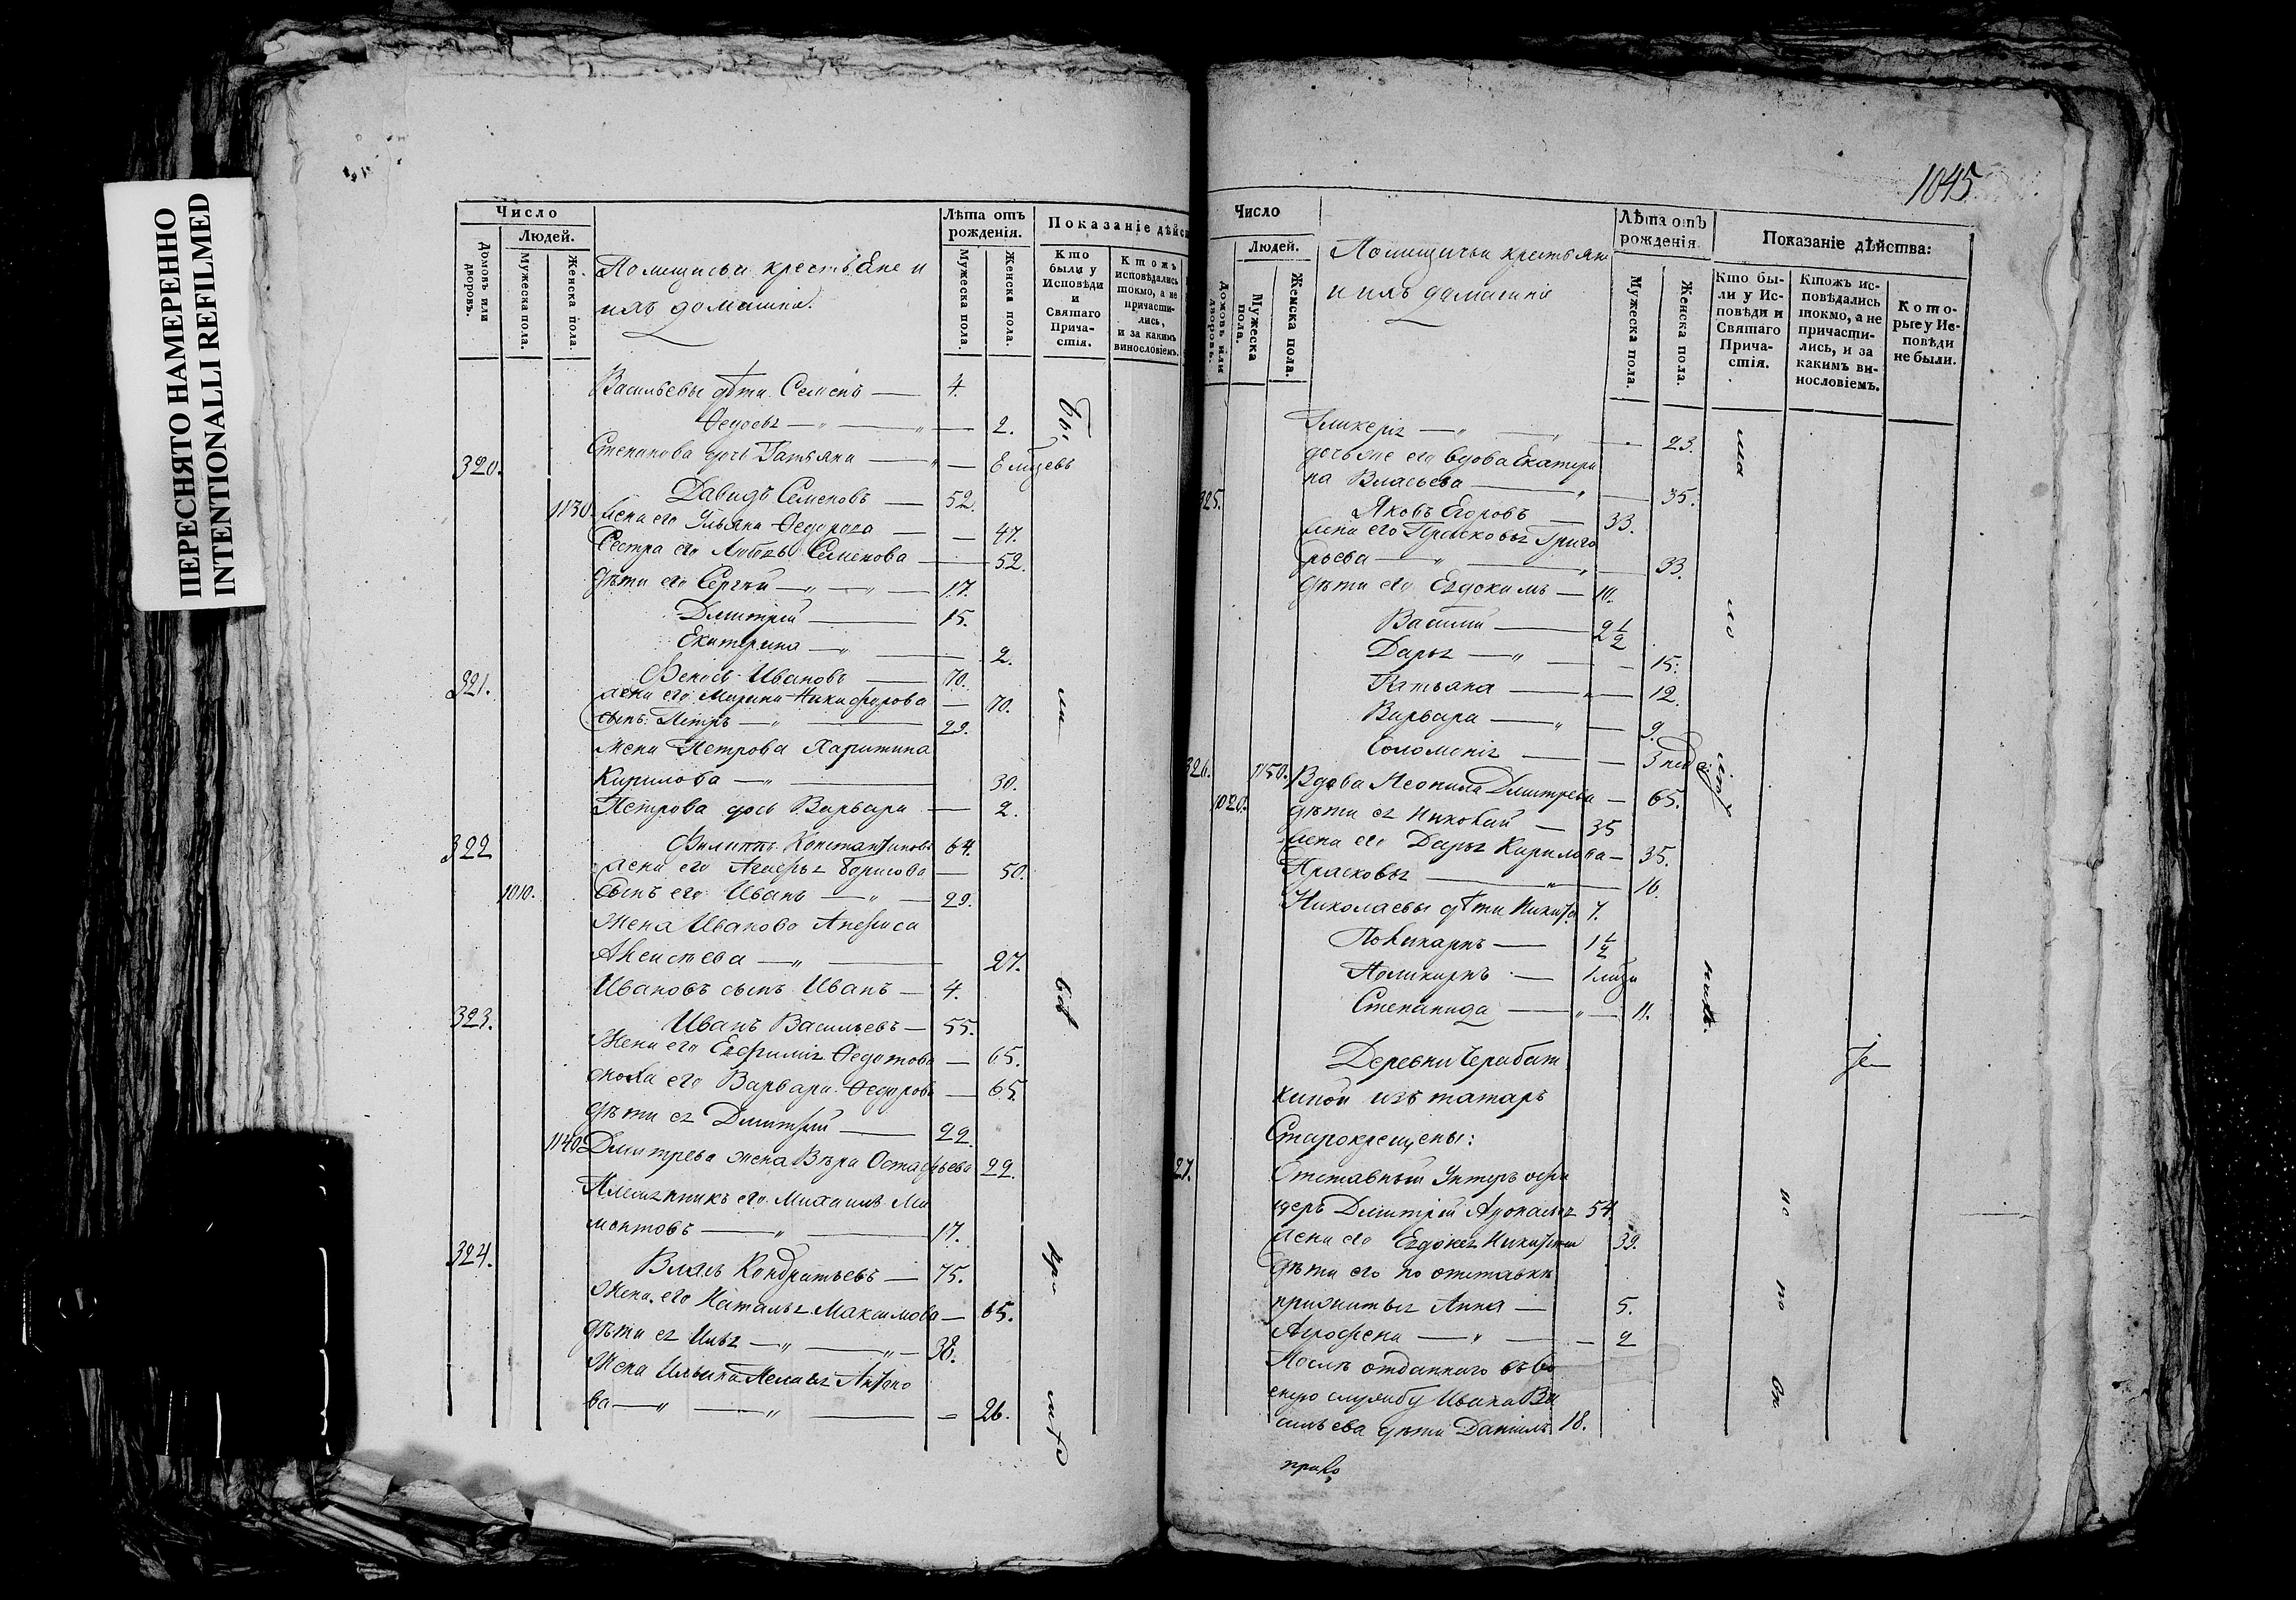 ПЕРЕСНЯТО НАМЕРЕННО
INTENTIONALLI REFILMED
Число
Людей.
Домовъ или дворовъ.
Мужеска пола.
Женска пола.
Помещичьи крестьяне и
ихъ домашніе.
Лѣта отъ рожденія.
Мужеска пола.
Женска пола.
Показаніе дѣйс
Кто были у Исповѣди и Святаго Причастія.
Ктожъ исповѣдались токмо, а не причастились, и за какимъ винословіемъ.
Васильевы дѣти Семенъ — 4.
Федосья — 2.
320. Степанова дочь Татьяна —
Давидъ Семеновъ — 52.
1130. жена его Ульяна Федорова — 47.
Сестра его Любовь Семенова — 52.
дѣти его Сергѣй — 17.
Дмитрій — 15.
Екатерина — 2.
321. Ивановъ — 70.
жена его Марина Никифорова — 70.
сынъ Петръ — 29.
жена Петрова Харитина
Кирилова — 30.
Петрова дочь Варвара — 2.
322 Филиппъ Константиновъ 64.
жена его Агафья Борисова — 50.
1010. Сынъ его Иванъ — 29.
Жена Иванова Анфиса
Алексѣева — 27.
Ивановъ сынъ Иванъ — 4.
323. Иванъ Васильевъ — 55.
Жена его Евфимія Федотова — 65.
сноха его Варвара Федорова — 65.
дѣти ея Дмитрій — 22.
1140. Дмитрева жена Вѣра Остафьева 22.
Племянникъ его Михаилъ Ма
монтовъ — 17.
324. Власъ Кондратьевъ — 75.
Жена его Наталья Максимова — 65.
дѣти ея Илья — 38.
Жена Ильина Пелагея Антоно
ва — 26.
1045
Число
Людей.
Домовъ или дворовъ.
Мужеска пола.
Женска пола.
Помещичьи крестьяне
и ихъ домашніе
Лѣта отъ рожденія.
Мужеска пола.
Женска пола.
Показаніе дѣйства:
Кто были у Исповѣди и Святаго Причастія.
Ктожъ исповѣдались токмо, а не причастились, и за какимъ винословіемъ.
Которые у Исповѣди не были.
Гликерія — 23.
его вдова Екатери
на Власьева — 35.
325. Яковъ Егоровъ — 33.
жена его Прасковья Григо
рьева — 33.
дѣти его Евдокимъ — 10.
Василій — 2 1/2
Дарья — 15.
Татьяна — 12.
Варвара — 9.
Соломонія — 3 нед
326. 1150. Вдова Неонила Дмитрева — 65.
1020. дѣти ея Николай — 35
жена его Дарья Кирилова — 35.
Прасковья — 10.
Николаевы дѣти Никита 7.
Поликарпъ — 1 1/2
Поликарпъ —
Степанида — 11.
Деревни
киной изъ татаръ
Старокрещены:
27. Отставный Унтеръ офи
церъ Дмитрій 54.
жена его Евдокія Никитина 39.
дѣти его по отставкѣ
прижитыя Анна — 5.
Агрофена — 2
Послѣ отданнаго въ во
енную службу Ивана Ва
сильева дѣти Даніилъ 18.